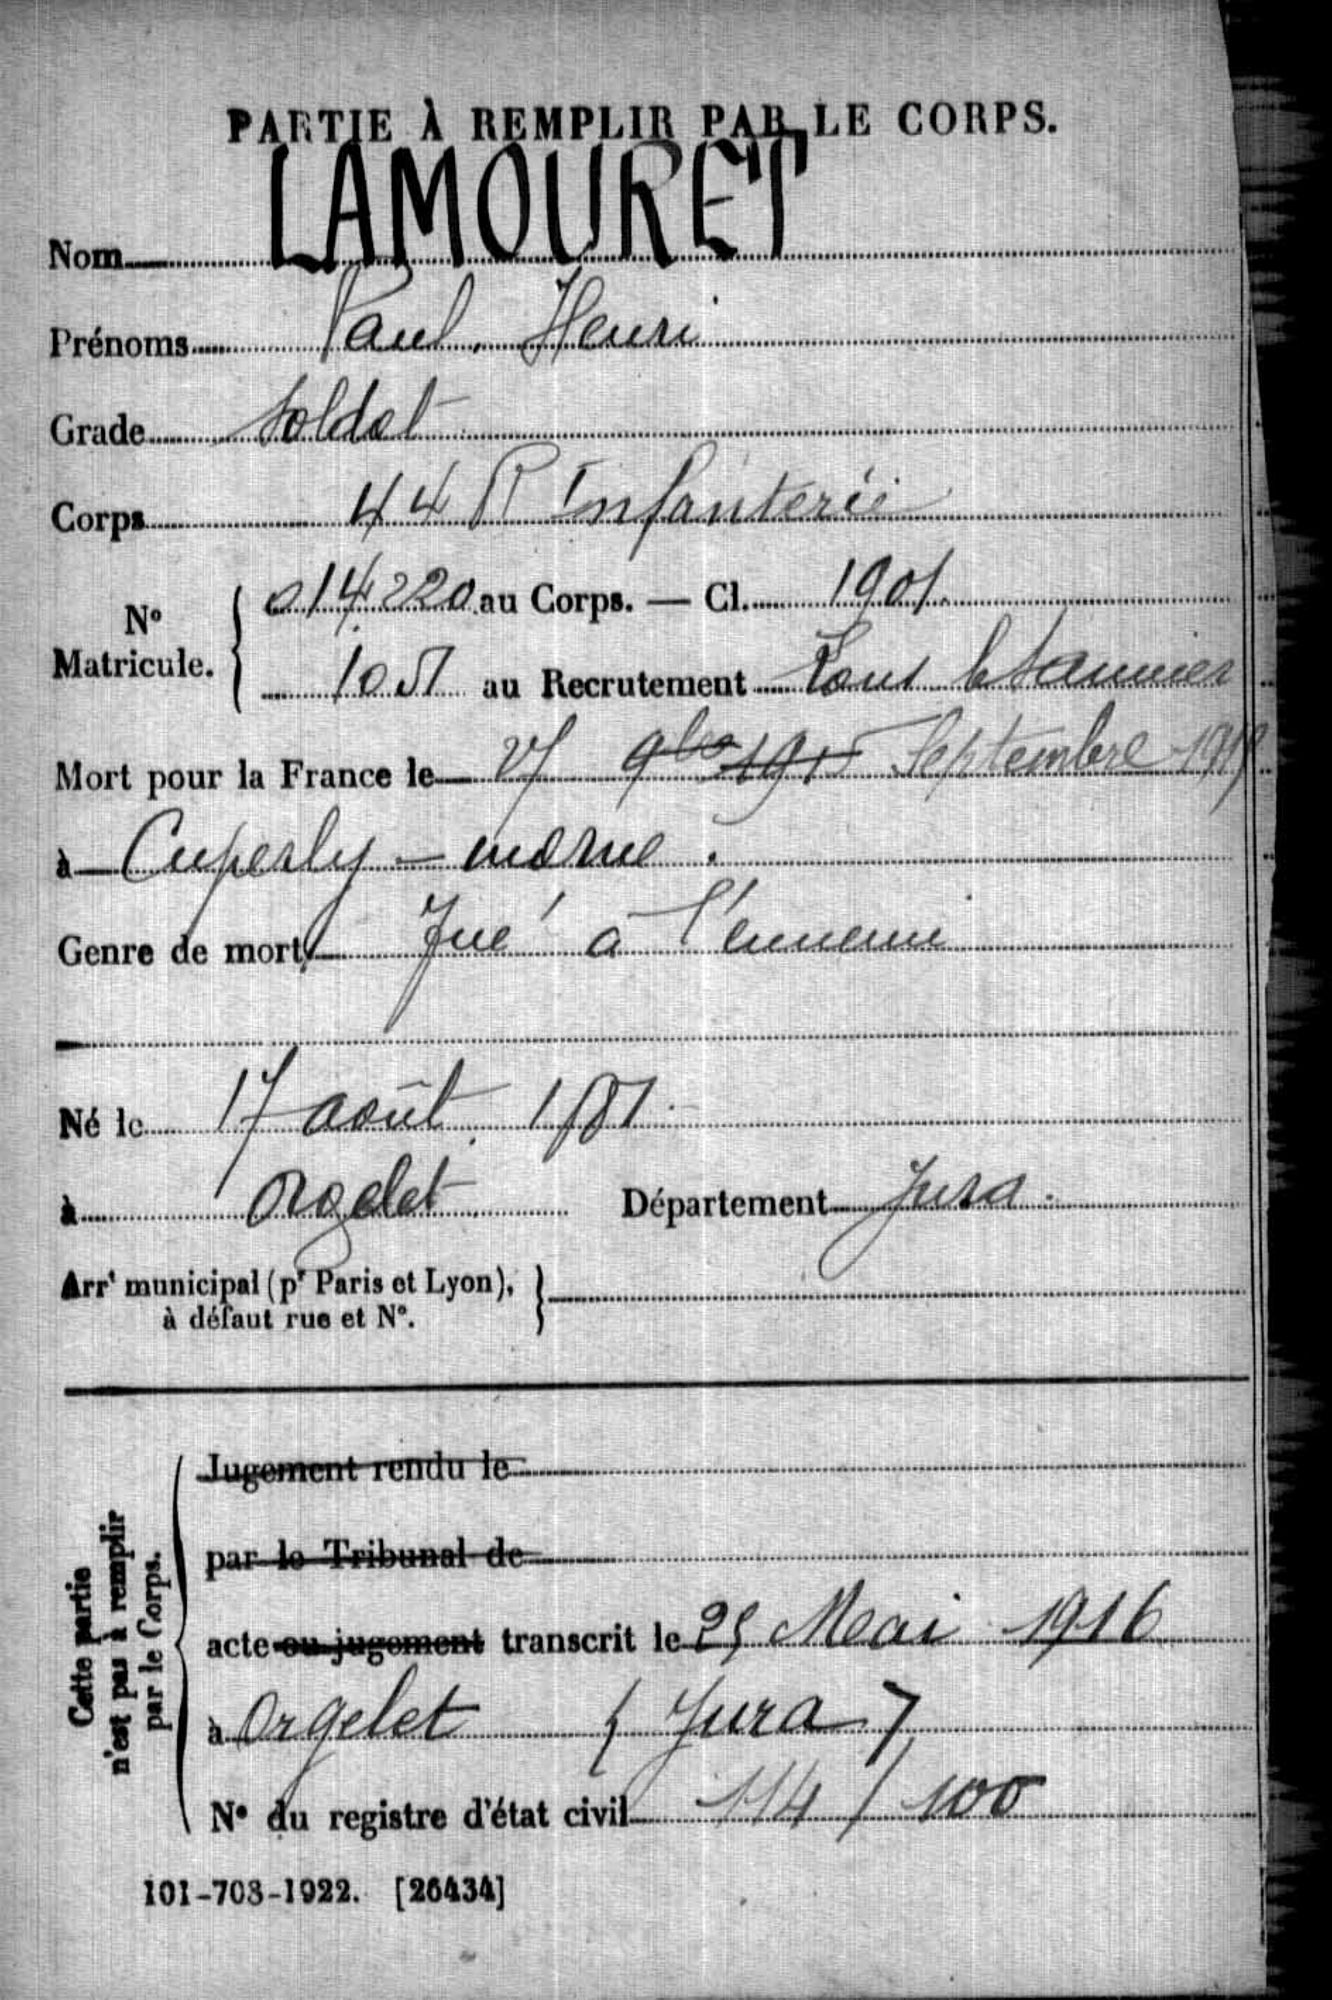 PARTIE À REMPLIR PAR LE CORPS.
Nom LAMOURET
Prénoms Paul, Henri
Grade Soldat
Corps 44 R Infanterie
N° Matricule. 014.220 au Corps. — Cl. 1901.
1051 au Recrutement Lons le Saunier
Mort pour la France le 27 9bre 1915 Septembre 1915
à Cuperly - marne.
Genre de mort Tué à l'ennemi
Né le 17 août 1881
à Orgelet Département Jura.
Arrt municipal (pr Paris et Lyon),
à défaut rue et N°.
Cette partie
n'est pas à remplir
par le Corps.
Jugement rendu le
par le Tribunal de
acte ou jugement transcrit le 25 Mai 1916
à Orgelet (Jura)
N° du registre d'état civil 114/100
101-708-1922. [26434]